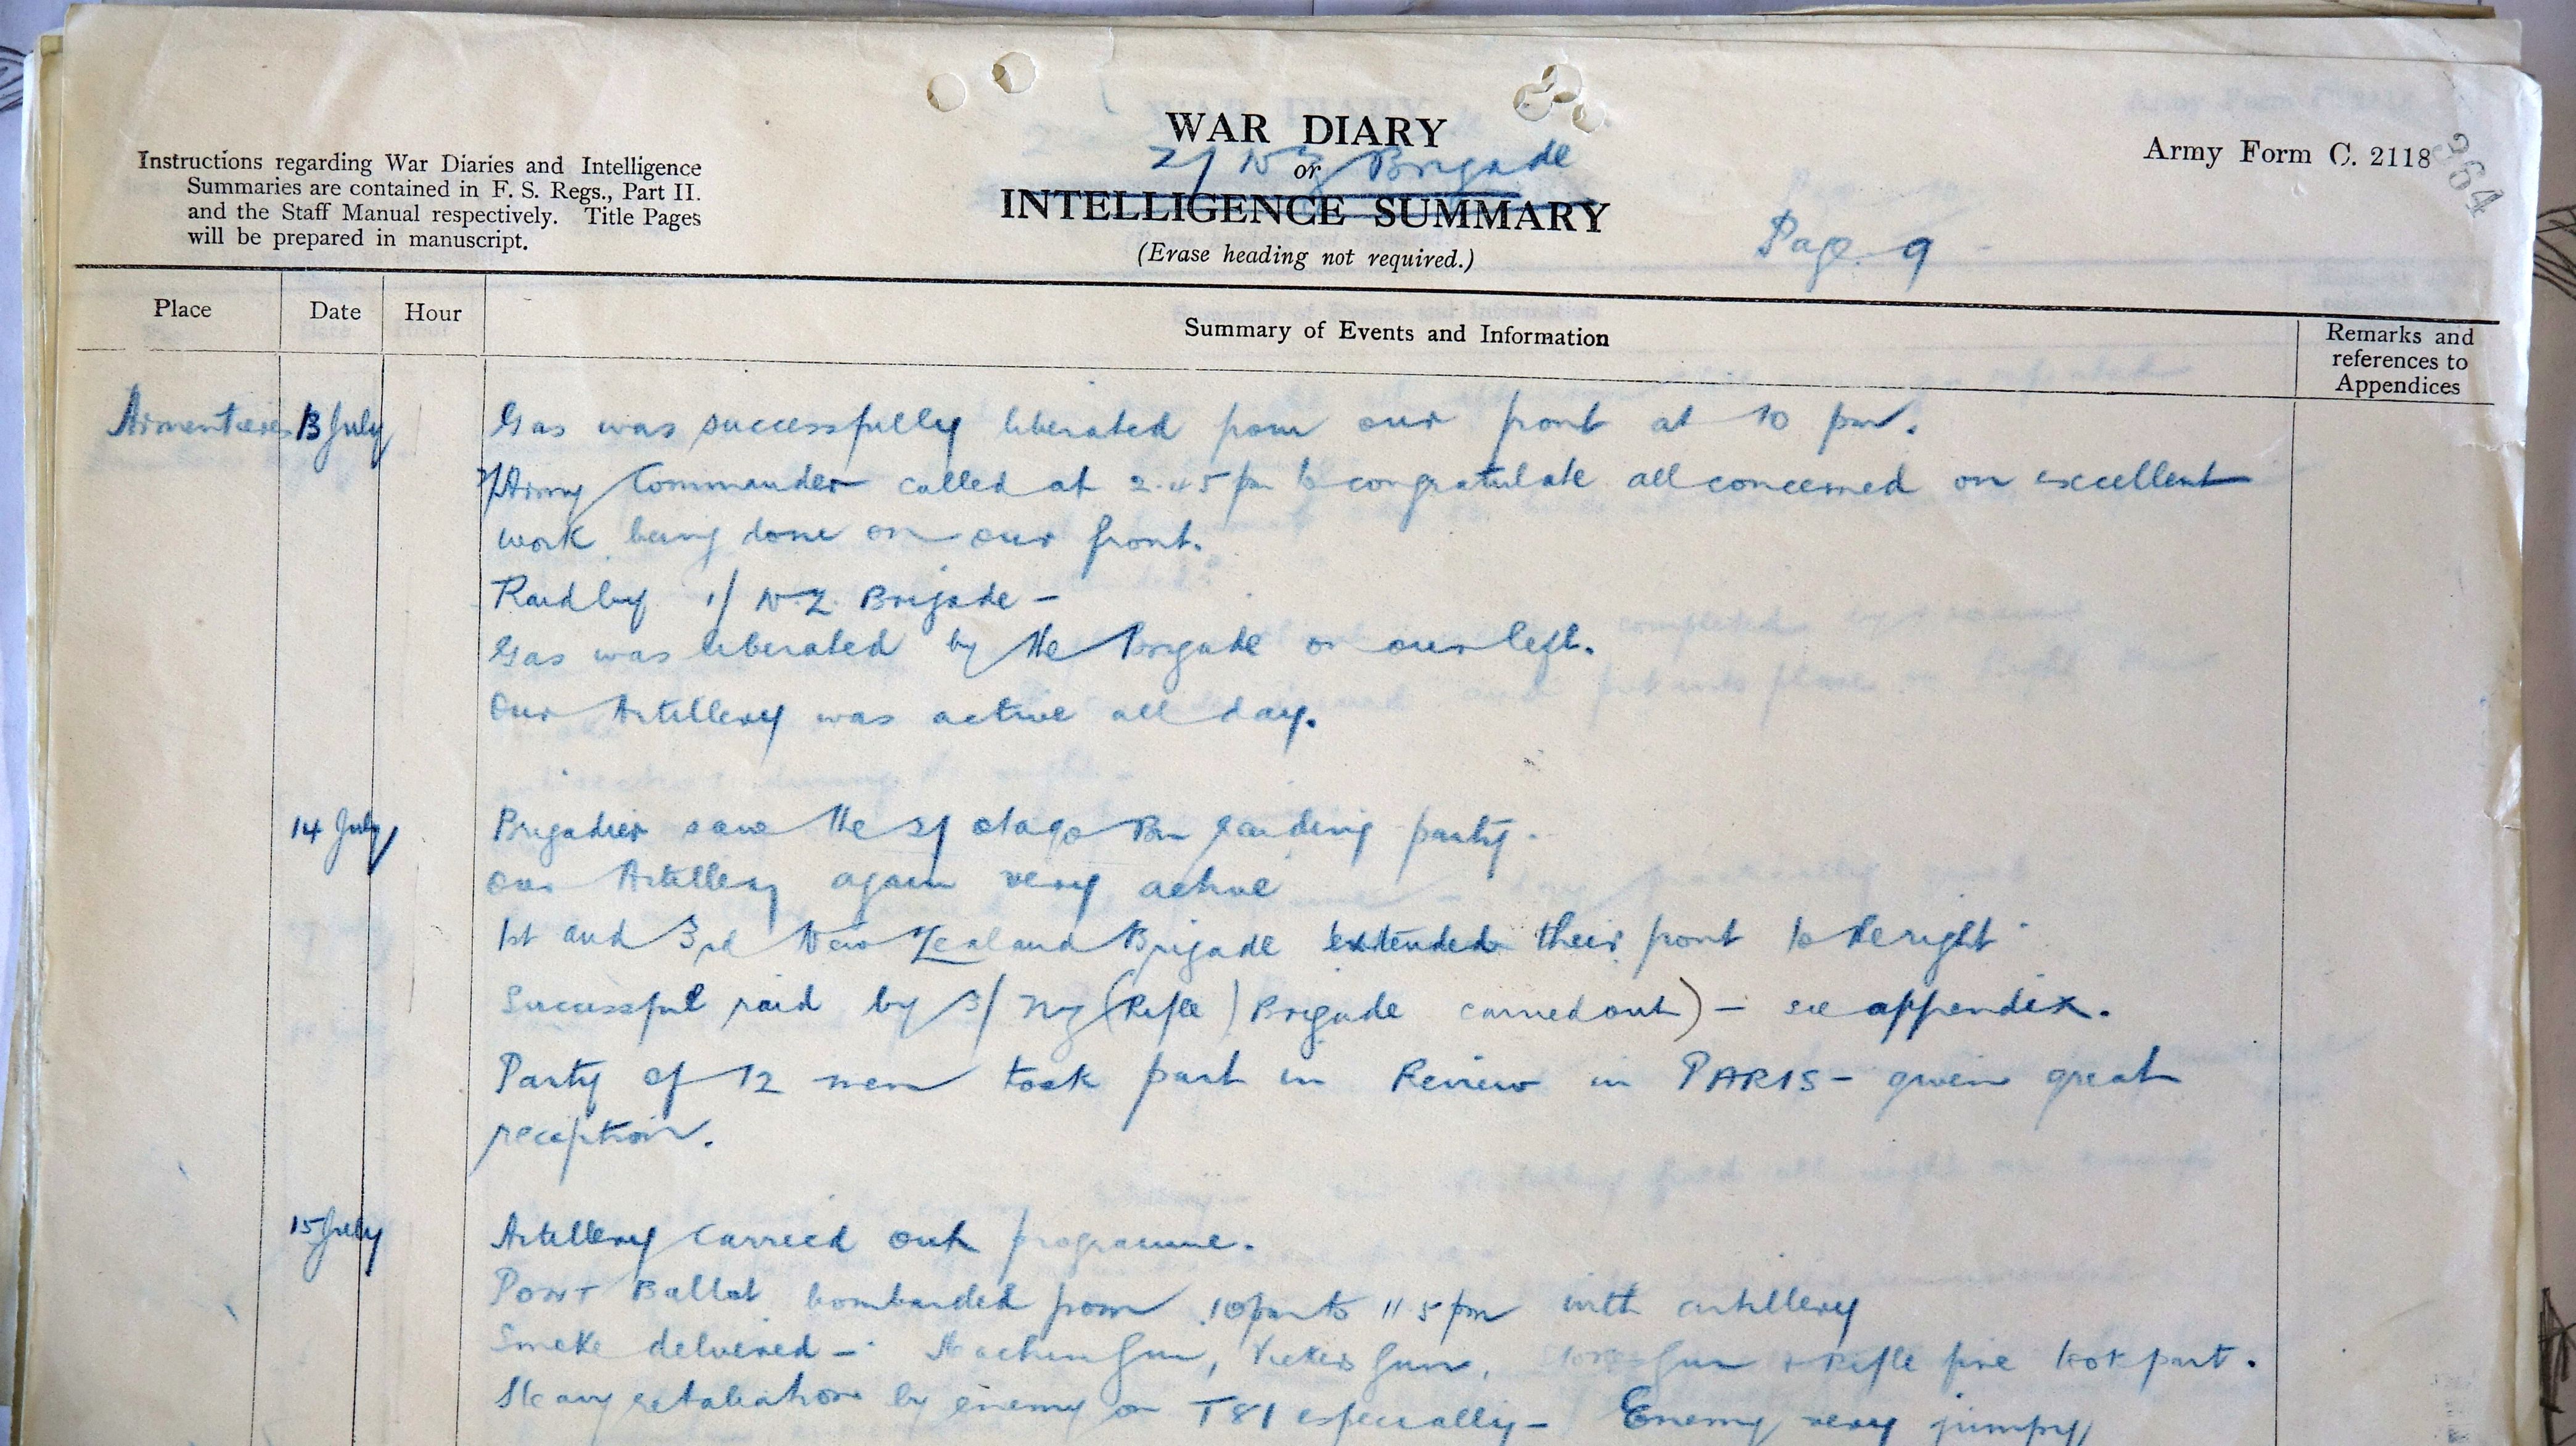 WAR DIARY
2/ NZ Brigade
or
INTELLIGENCE SUMMARY
(Erase heading not required.)
Instructions regarding War Diaries and Intelligence
Summaries are contained in F. S. Regs., Part II.
and the Staff Manual respectively. Title Pages
will be prepared in manuscript.
Army Form C. 2118
364
Page 9
Place
Date
Hour
Summary of Events and Information
Remarks and
references to
Appendices
Armentieres 13 July
Gas was successfully liberated from our front at 10 pm.
Army Commander called at 2.45 pm to congratulate all concerned on excellent
work being done on our front.
Raid by 1/ N.Z. Brigade -
Gas was liberated by the Brigade on our left.
Our Artillery was active all day.
14 July
Brigadier saw the 2/ Otago Bn raiding party.
Our Artillery again very active
1st and 3rd New Zealand Brigade extended their front to the right
Successful raid by 3/ NZ (Rifle) Brigade carried out) - see appendix.
Party of 12 men took part in Review in PARIS - given great
reception.
15 July
Artillery carried out programme.
PONT Ballot bombarded from 10 pm to 11.5 pm with artillery
Smoke delivered - Machine Gun, Vickers Gun, Gun + Rifle fire took part.
Heavy retaliation by enemy on T81 especially - Enemy very jumpy